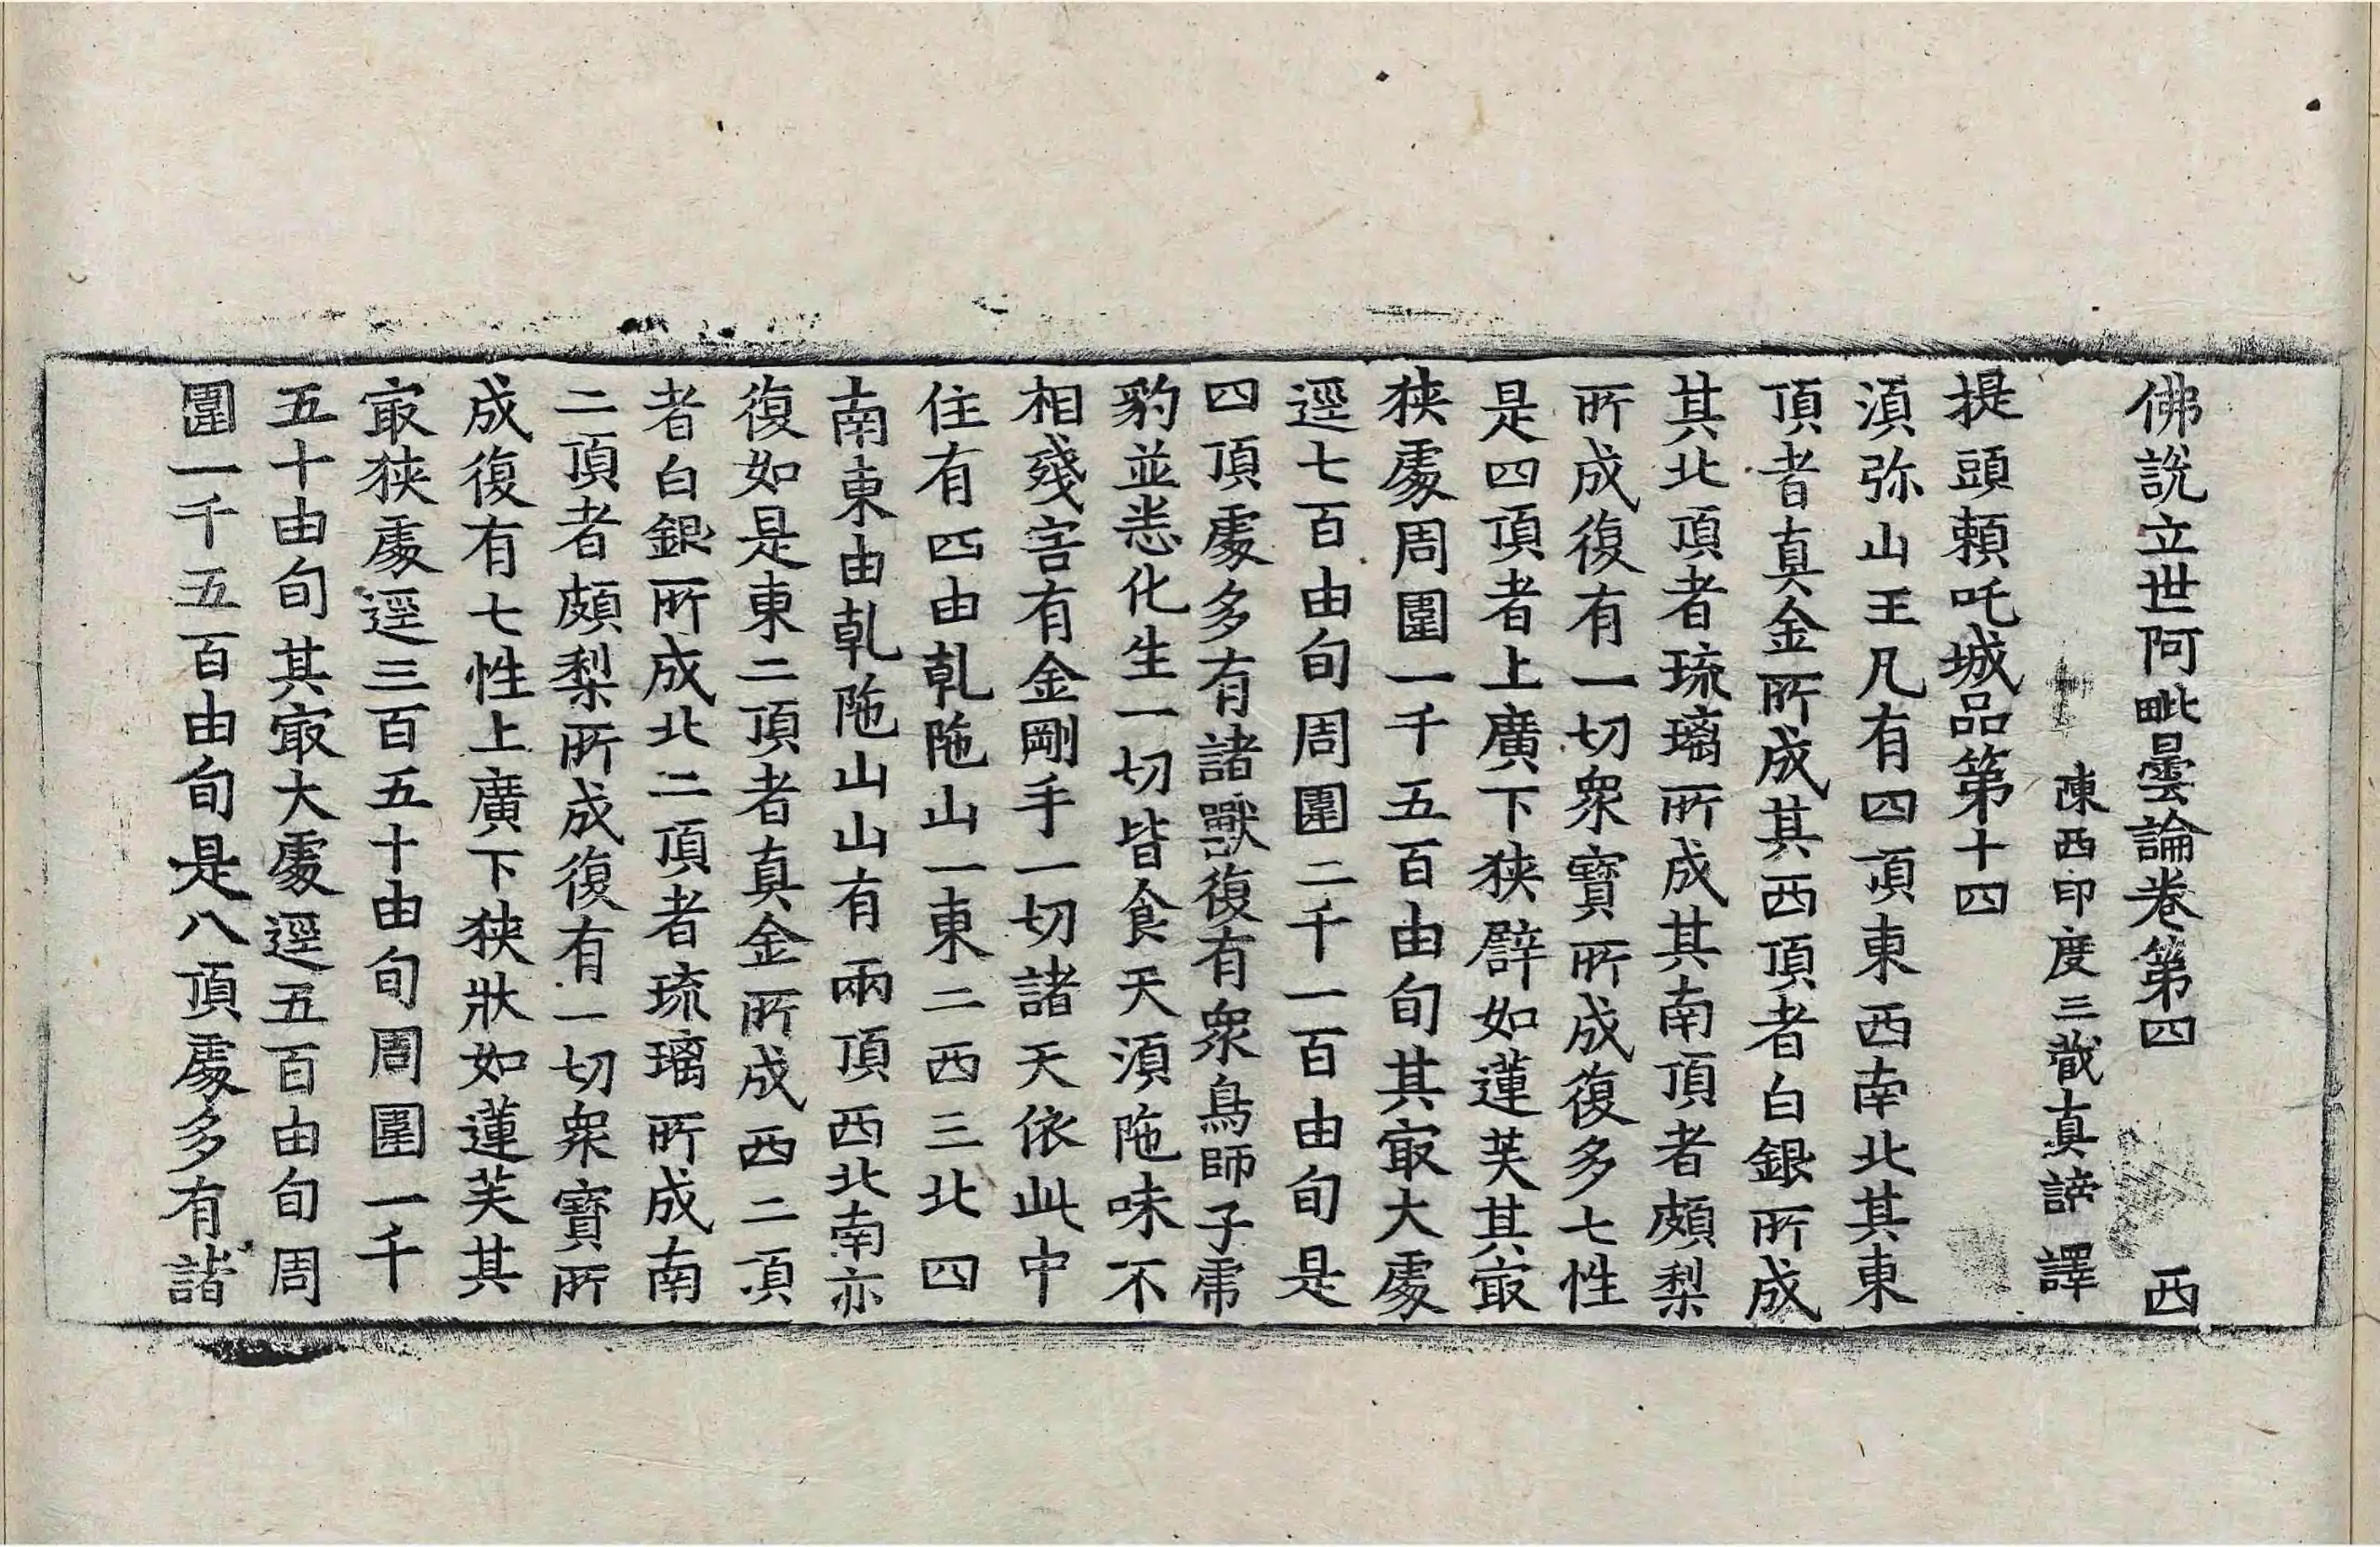 佛說立世阿毗曇論卷第四　西
陳西印度三藏真諦譯
提頭賴吒城品第十四
湏弥山王凡有四頂東西南北其東
頂者真金所成其西頂者白銀所成
其北頂者琉璃所成其南頂者頗梨
所成復有一切衆寶所成復多七性
是四頂者上廣下狹辟如蓮芙其㝡
狹處周圍一千五百由旬其㝡大處
逕七百由旬周圍二千一百由旬是
四頂處多有諸獸復有衆鳥師子虎
豹並悉化生一切皆食天湏陁味不
相殘害有金剛手一切諸天依此中
住有四由乹陁山一東二西三北四
南東由乹陁山山有兩頂西北南亦
復如是東二頂者真金所成西二頂
者白銀所成北二頂者琉璃所成南
二頂者頗梨所成復有一切衆寶所
成復有七性上廣下狹狀如蓮芙其
㝡狹處逕三百五十由旬周圍一千
五十由旬其㝡大處逕五百由旬周
圍一千五百由旬是八頂處多有諸